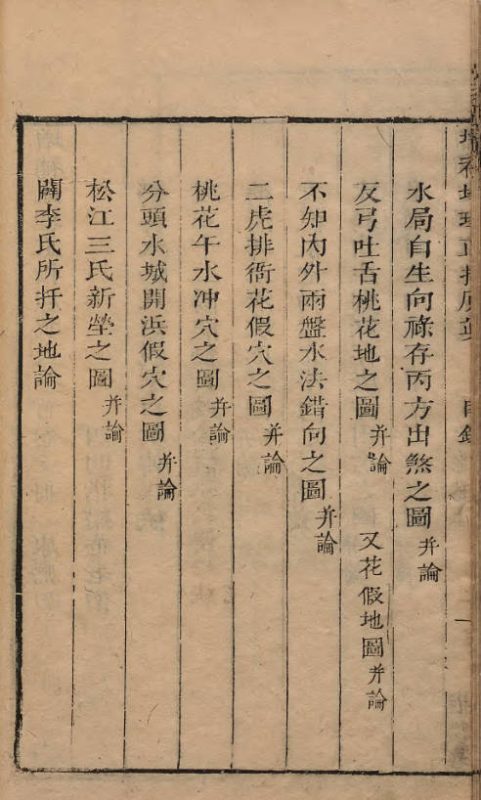 水局自生向祿存丙方出煞之圖并論
反弓吐舌桃花地之圖并論 又花假地圖并論
不知內外兩盤水法錯向之圖并論
二虎排衙花假穴之圖并論
桃花午水冲穴之圖并論
分頭水城開浜假穴之圖并論
松江三氏新塋之圖并論
闢李氏所扦之地論